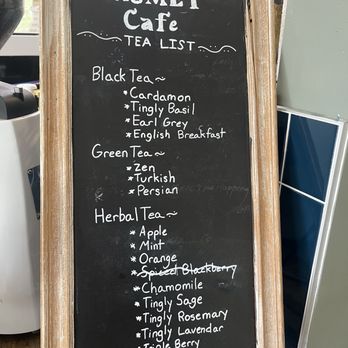 Cafe
TEA LIST
Black Tea ~
* Cardamon
* Tingly Basil
* Earl Grey
* English Breakfast
Green Tea ~
* Zen
* Turkish
* Persian
Herbal Tea ~
* Apple
* Mint
* Orange
* Spiced Blackberry
* Chamomile
* Tingly Sage
* Tingly Rosemary
* Tingly Lavendar
Berry